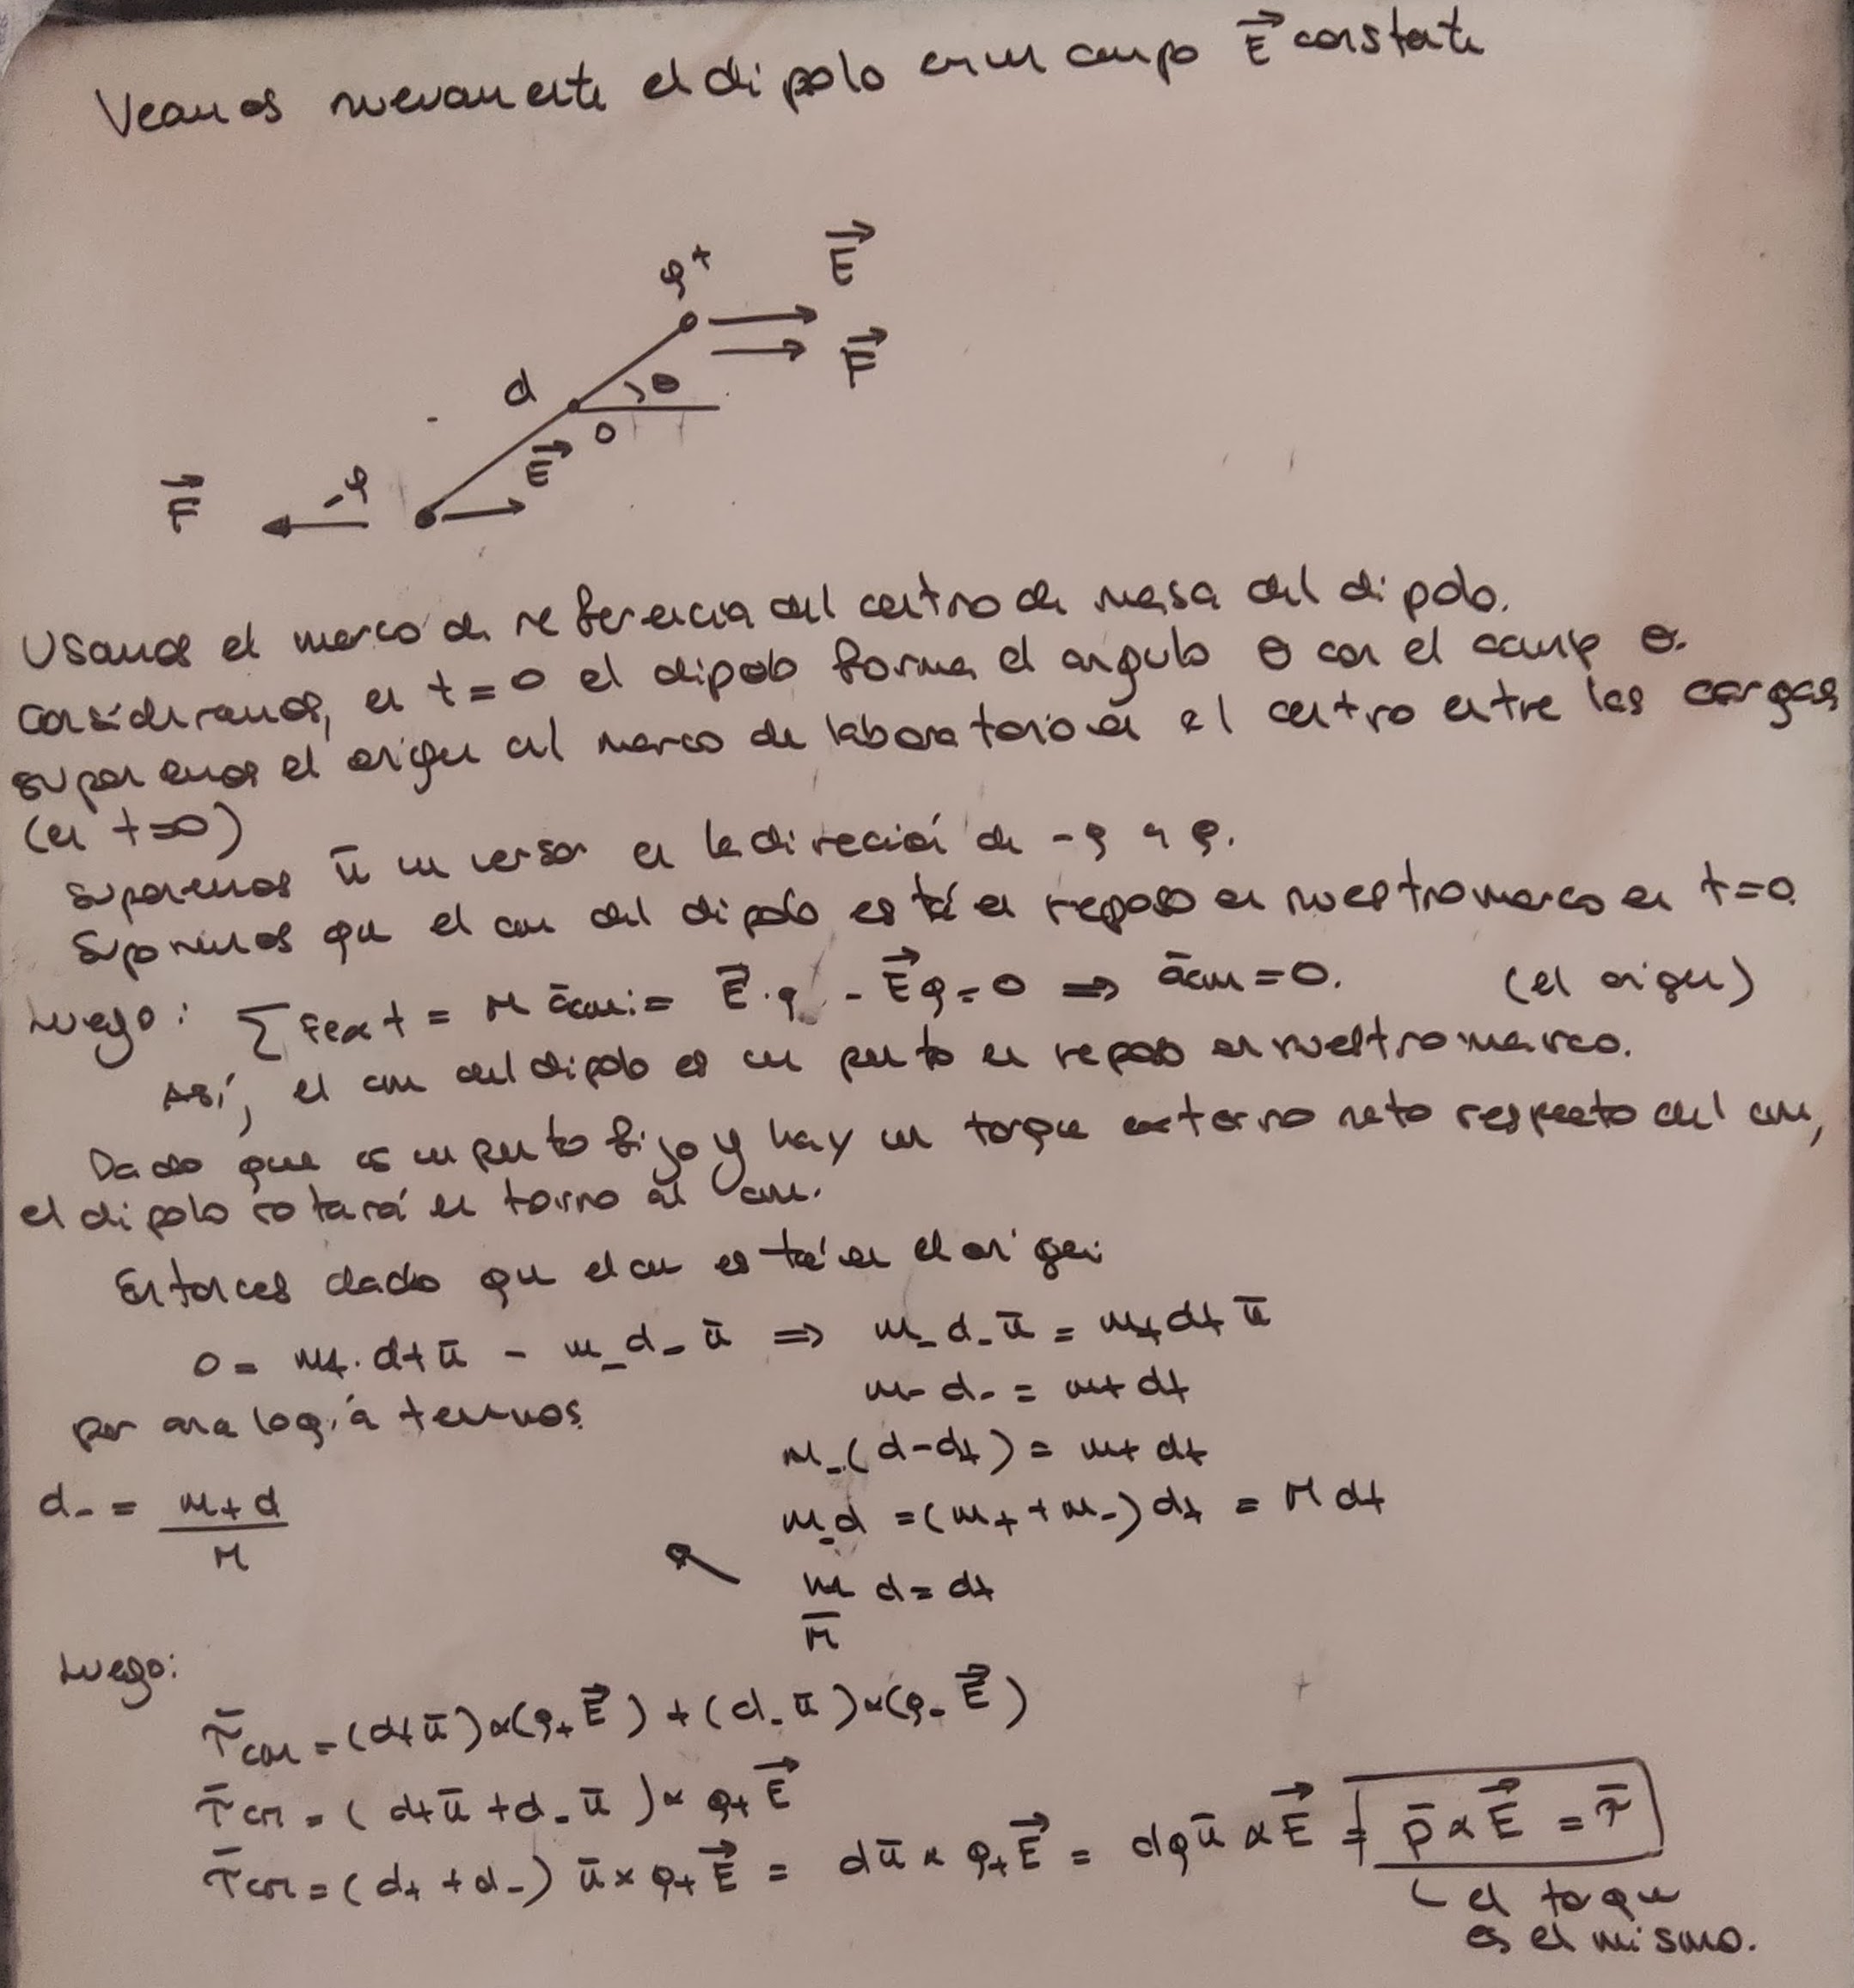 Veamos nuevamente el dipolo en un campo E⃗ constante
q+
E⃗
F⃗
d
θ
O
E⃗
-q
F⃗
Usamos el marco de referencia del centro de masa del dipolo.
Consideramos, en t=0 el dipolo forma el ángulo θ con el camp θ.
suponemos el origen del marco de laboratorio en el centro entre las cargas
(en t=0)
Suponemos ū un versor en la dirección de -q a q.
Suponemos que el cm del dipolo está en reposo en nuestro marco en t=0.
Luego: ∑ Fext = M ācm = E⃗·q - E⃗q = 0 ⇒ ācm = 0. (el origen)
Así, el cm del dipolo es un punto en reposo en nuestro marco.
Dado que es un punto fijo y hay un torque externo neto respecto del cm,
el dipolo rotará en torno al cm.
Entonces dado que el cm está en el origen:
0 = m+·d+ū - m_d-ū ⇒ m_d-ū = m+d+ū
m-d- = m+d+
por analogía tenemos:
m-(d-d+) = m+d+
d- = m+d/M
m-d = (m+ + m-)d+ = M d+
m/M d = d+
Luego:
τ̄cm = (d+ū)×(q+E⃗) + (d-ū)×(q-E⃗)
τ̄cm = (d+ū + d-ū)× q+E⃗
τ̄cm = (d+ + d-) ū × q+E⃗ = dū × q+E⃗ = dqū × E⃗ = p̄ × E⃗ = τ̄
el torque
es el mismo.